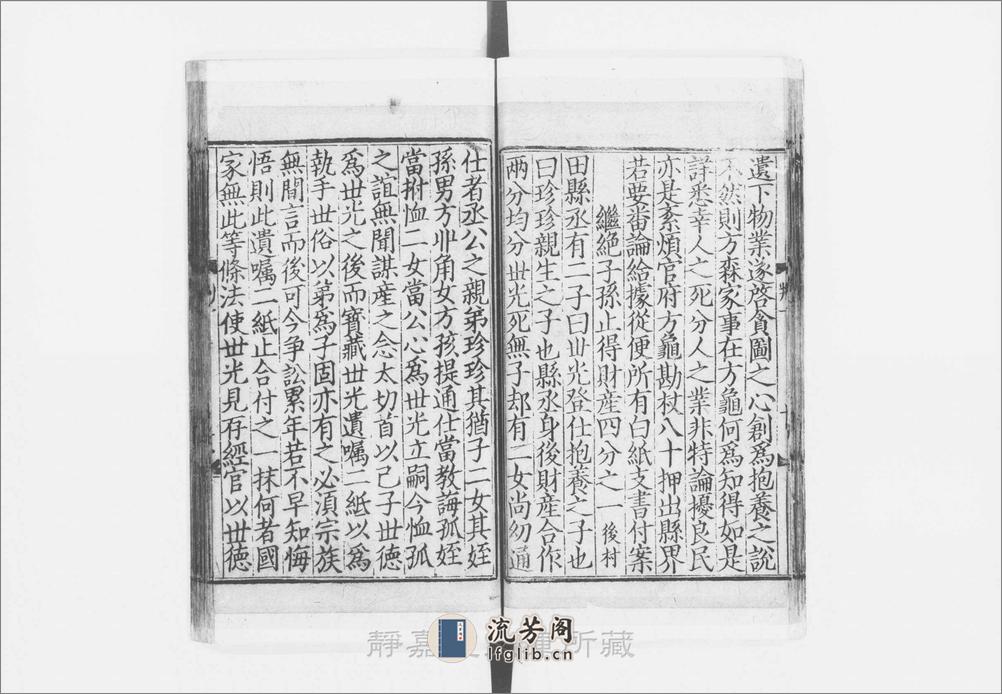 遺下物業遂啓貪圖之心創爲抱養之說
不然則方森家事在方龜何爲知得如是
詳悉幸人之死分人之業非特論擾良民
亦是紊煩官府方龜勘杖八十押出縣界
若要畨論給據從便所有白紙支書付案
繼絶子孫止得財産四分之一 後村
田縣丞有二子曰丗光登仕抱養之子也
曰珍珍親生之子也縣丞身後財産合作
兩分均分丗光死無子却有二女尚㓜通
仕者丞公之親弟珍珍其猶子二女其姪
孫男方丱角女方孩提通仕當教誨孤姪
當拊恤二女當公心爲丗光立嗣今恤孤
之誼無聞謀産之念太切首以己子丗德
爲丗光之後而寳藏丗光遺囑二紙以爲
執手丗俗以弟爲子固亦有之必湏宗族
無間言而後可今争訟累年若不早知悔
悟則此遺囑二紙止合付之一抹何者國
家無此等條法使丗光見存經官以丗德
靜嘉
所藏
流芳阁
lfglib.cn